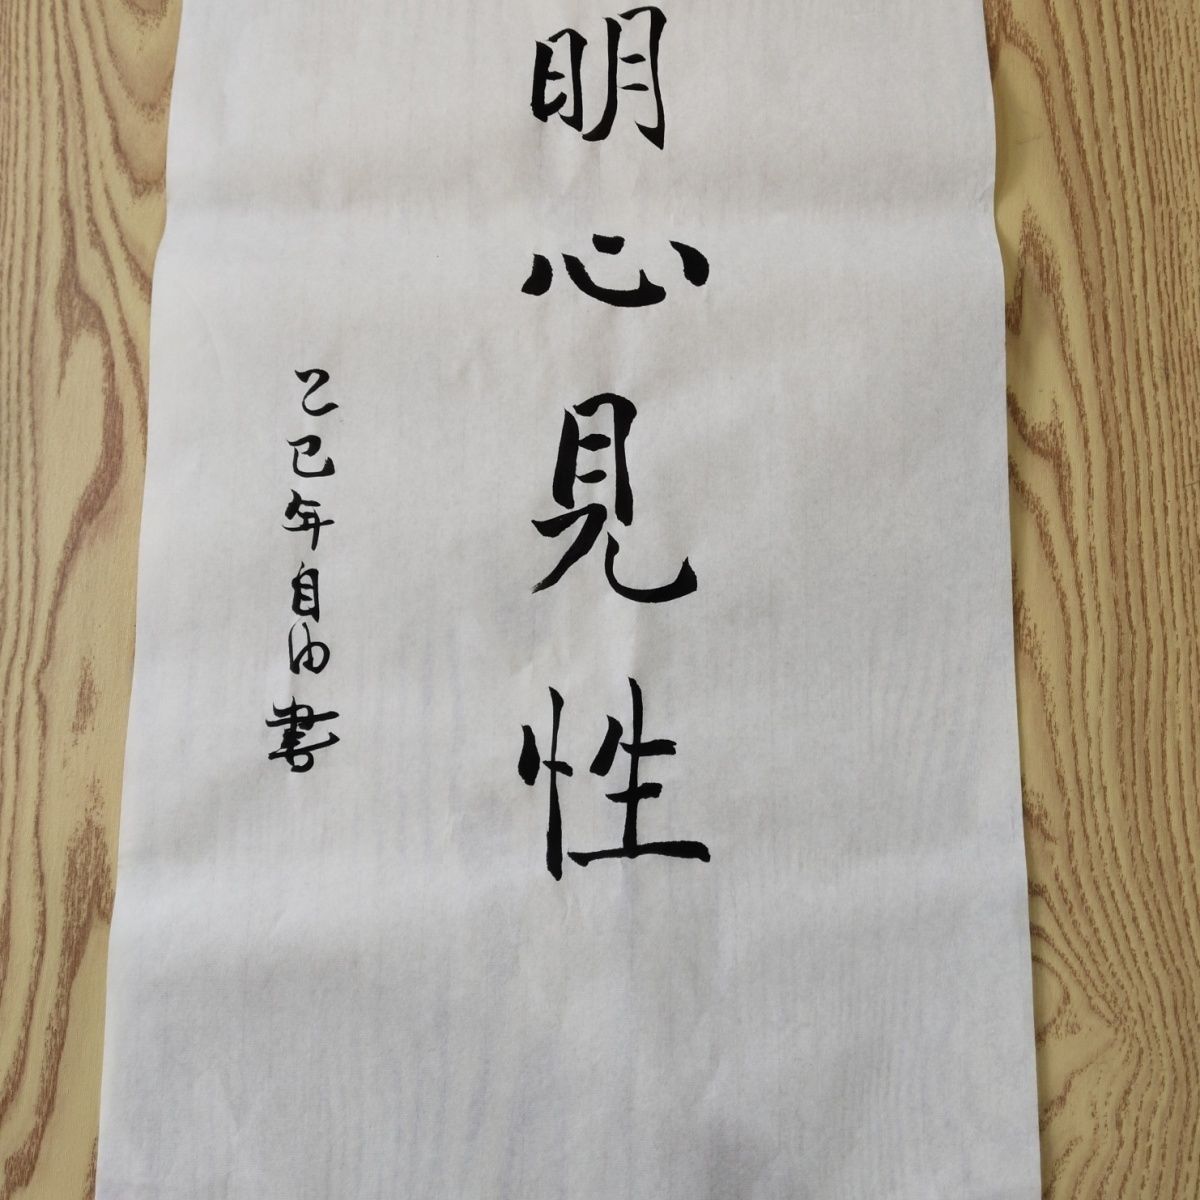 明心見性
乙巳年自由書